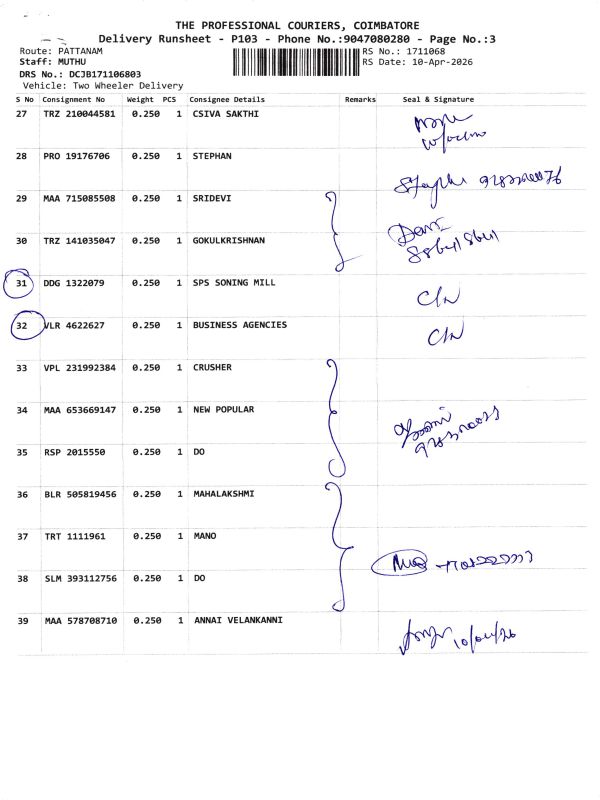 THE PROFESSIONAL COURIERS, COIMBATORE
Delivery Runsheet - P103 - Phone No.:9047080280 - Page No.:3
Route: PATTANAM RS No.: 1711068
Staff: MUTHU RS Date: 10-Apr-2026
DRS No.: DCJB171106803
Vehicle: Two Wheeler Delivery
S No Consignment No Weight PCS Consignee Details Remarks Seal & Signature
27 TRZ 210044581 0.250 1 CSIVA SAKTHI
28 PRO 19176706 0.250 1 STEPHAN
29 MAA 715085508 0.250 1 SRIDEVI
30 TRZ 141035047 0.250 1 GOKULKRISHNAN
31 DDG 1322079 0.250 1 SPS SONING MILL C/N
32 VLR 4622627 0.250 1 BUSINESS AGENCIES C/N
33 VPL 231992384 0.250 1 CRUSHER
34 MAA 653669147 0.250 1 NEW POPULAR
35 RSP 2015550 0.250 1 DO
36 BLR 505819456 0.250 1 MAHALAKSHMI
37 TRT 1111961 0.250 1 MANO
38 SLM 393112756 0.250 1 DO
39 MAA 578708710 0.250 1 ANNAI VELANKANNI 10/04/26